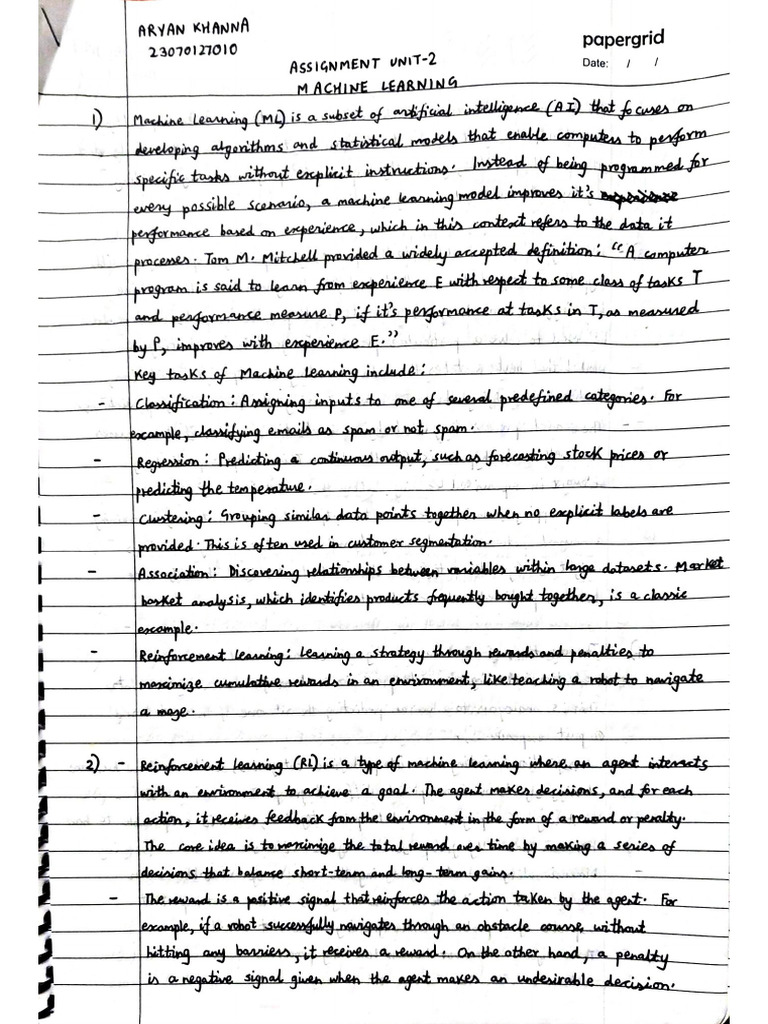 ARYAN KHANNA
23070127010
papergrid
Date: / /
ASSIGNMENT UNIT-2
MACHINE LEARNING
1) Machine Learning (ML) is a subset of artificial intelligence (AI) that focuses on
developing algorithms and statistical models that enable computers to perform
specific tasks without explicit instructions. Instead of being programmed for
every possible scenario, a machine learning model improves it's
performance based on experience, which in this context refers to the data it
processes. Tom M. Mitchell provided a widely accepted definition: "A computer
program is said to learn from experience E with respect to some class of tasks T
and performance measure P, if it's performance at tasks in T, as measured
by P, improves with experience E."
Key tasks of Machine learning include:
- Classification: Assigning inputs to one of several predefined categories. For
example, classifying emails as spam or not spam.
- Regression: Predicting a continuous output, such as forecasting stock prices or
predicting the temperature.
- Clustering: Grouping similar data points together when no explicit labels are
provided. This is often used in customer segmentation.
- Association: Discovering relationships between variables within large datasets. Market
basket analysis, which identifies products frequently bought together, is a classic
example.
- Reinforcement learning: learning a strategy through rewards and penalties to
maximize cumulative rewards in an environment, like teaching a robot to navigate
a maze.
2) - Reinforcement learning (RL) is a type of machine learning where an agent interacts
with an environment to achieve a goal. The agent makes decisions, and for each
action, it receives feedback from the environment in the form of a reward or penalty.
The core idea is to maximize the total reward over time by making a series of
decisions that balance short-term and long-term gains.
- The reward is a positive signal that reinforces the action taken by the agent. For
example, if a robot successfully navigates through an obstacle course without
hitting any barriers, it receives a reward. On the other hand, a penalty
is a negative signal given when the agent makes an undesirable decision.